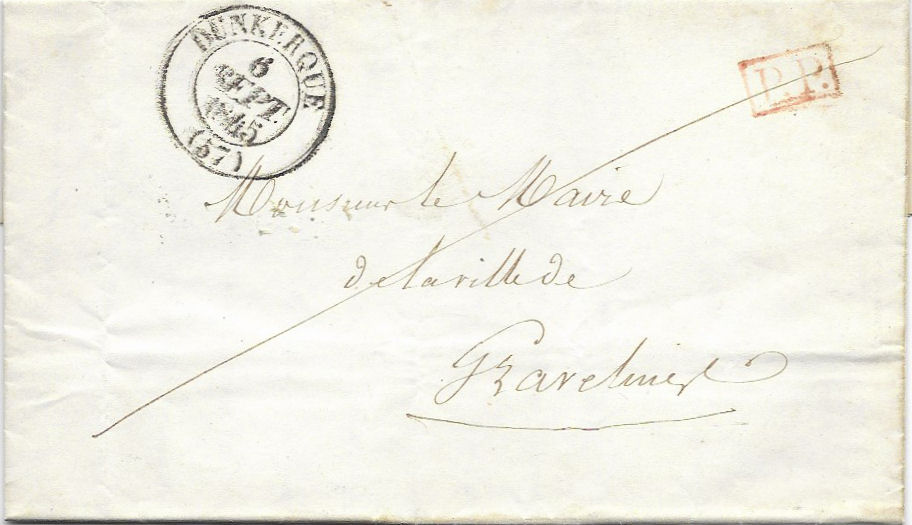 DUNKERQUE
6
SEPT.
1845
(57)
P.P.
Monsieur le Maire
de la ville de
Gravelines